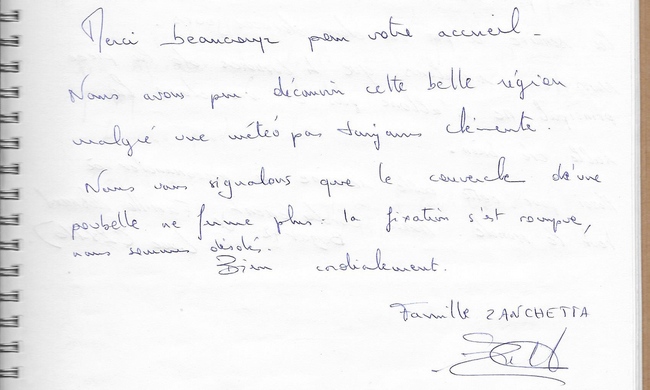 Merci beaucoup pour votre accueil.
Nous avons pu découvrir cette belle région
malgré une météo pas toujours clémente.
Nous vous signalons que le couvercle d'une
poubelle ne ferme plus : la fixation s'est rompue,
nous sommes désolés.
Bien cordialement.
Famille ZANCHETTA